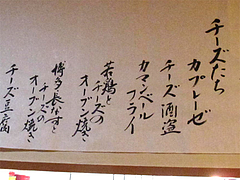 チーズだら
カプレーゼ
チーズ酒盗
カマンベール
フライ
若鶏と
チーズの
オーブン焼き
博多長なすと
チーズの
オーブン焼き
チーズ豆腐